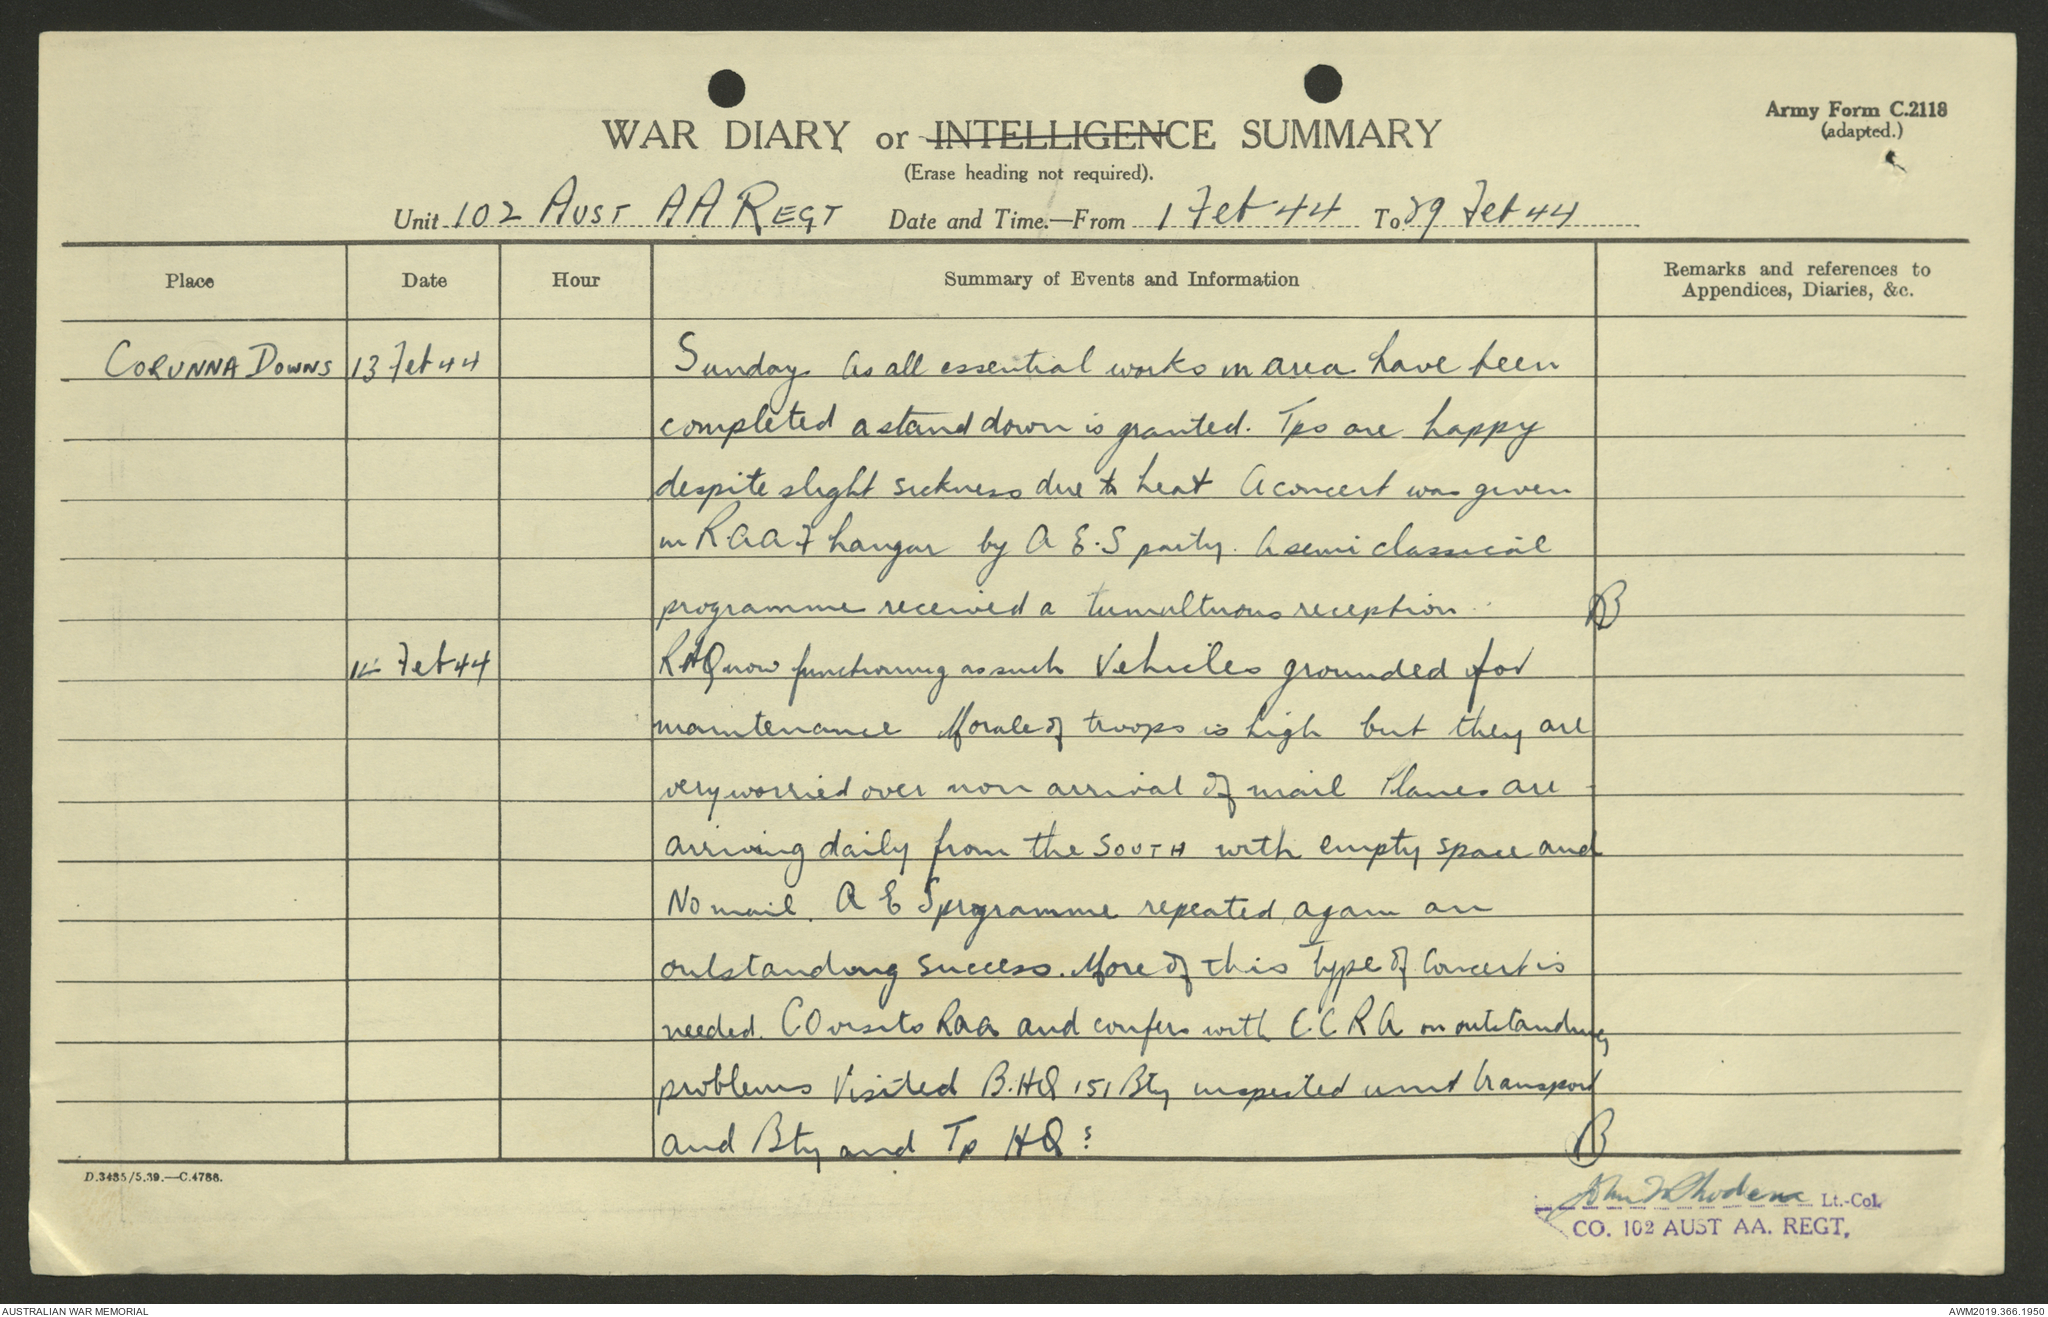 Army Form C.2118
(adapted.)
WAR DIARY or INTELLIGENCE SUMMARY
(Erase heading not required).
Unit 102 AUST AA REGT Date and Time.—From 1 Feb 44 To 29 Feb 44
Place Date Hour Summary of Events and Information Remarks and references to
Appendices, Diaries, &c.
CORUNNA DOWNS 13 Feb 44 Sunday. As all essential works in area have been
completed a stand down is granted. Tps are happy
despite slight sickness due to heat A concert was given
in R.A.A.F hangar by A.E.S party. A semi classical
programme received a tumultuous reception
14 Feb 44 RHQ now functioning as such Vehicles grounded for
maintenance Morale of troops is high but they are
very worried over non arrival of mail Planes are
arriving daily from the SOUTH with empty space and
No mail. A E S programme repeated again an
outstanding success. More of this Type of Concert is
needed. CO visits Raa and confers with C.C R A on outstanding
problems Visited B.HQ 151 Bty inspected unit transport
and Bty and Tp HQs
D.3485/5.39.—C.4788.
Lt.-Col.
CO. 102 AUST AA. REGT.
AUSTRALIAN WAR MEMORIAL AWM2019.366.1950